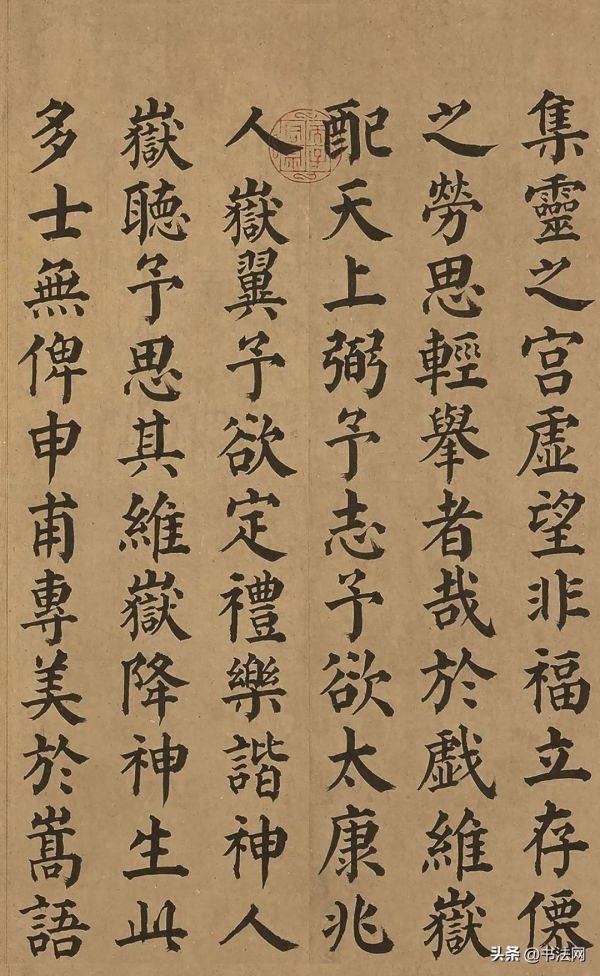 集靈之宫虛望非福立存僊
之勞思輕舉者哉於戲維嶽
配天上弼予志予欲太康兆
人嶽翼予欲定禮樂諧神人
嶽聽予思其維嶽降神生此
多士無俾申甫專美於嵩語
头条 @书法网